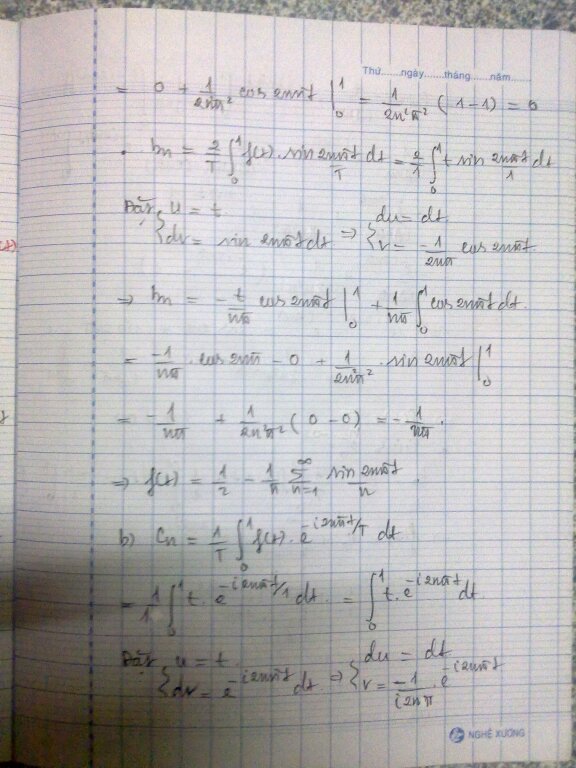 Thứ.......ngày.......tháng.......năm.......
= 0 + 1/(2n²π²) cos 2nπt |₀¹ = 1/(2n²π²) (1-1) = 0
• bn = 2/T ∫₀¹ f(t). sin 2nπt/T dt = 2/1 ∫₀¹ t sin 2nπt/1 dt
Đặt { u = t ⇒ { du = dt
dv = sin 2nπt dt v = -1/(2nπ) cos 2nπt
⇒ bn = -t/(nπ) cos 2nπt |₀¹ + 1/(nπ) ∫₀¹ cos 2nπt dt.
= -1/(nπ) . cos 2nπ - 0 + 1/(2n²π²) . sin 2nπt |₀¹
= -1/(nπ) + 1/(2n²π²) (0-0) = -1/(nπ).
⇒ f(t) = 1/2 - 1/π ∑ₙ₌₁^∞ sin 2nπt/n .
b) Cn = 1/T ∫₀¹ f(t). e^(-i2nπt/T) dt
= 1/1 ∫₀¹ t. e^(-i2nπt/1) dt. = ∫₀¹ t. e^(-i2nπt) dt.
Đặt { u = t ⇒ { du = dt
dv = e^(-i2nπt) dt v = -1/(i2nπ) e^(-i2nπt)
NGHỆ XƯƠNG